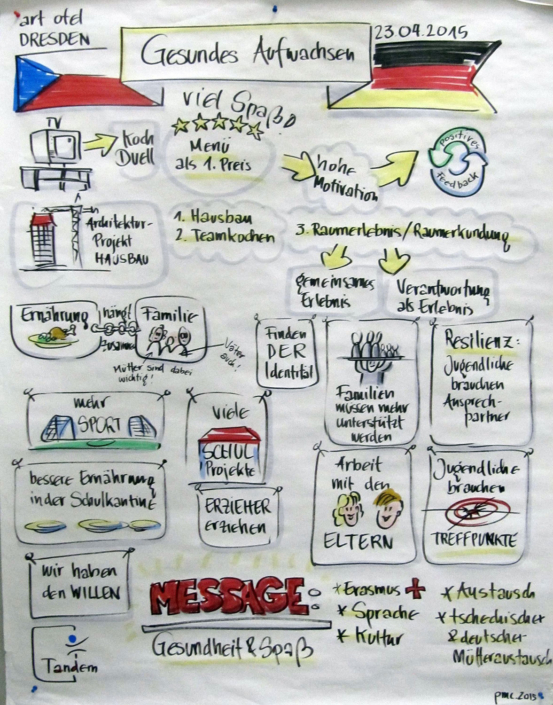 art otel
DRESDEN
Gesundes Aufwachsen
23.04.2015
viel Spaß
TV
Koch
Duell
Menü
als 1. Preis
hohe
Motivation
positives
feedback
Architektur-
Projekt
HAUSBAU
1. Hausbau
2. Teamkochen
3. Raumerlebnis/Raumerkundung
gemeinsames
Erlebnis
Verantwortung
als Erlebnis
Ernährung
hängt
zusammen
Familie
Mütter sind dabei
wichtig!
Väter
auch!
Finden
DER
Identität
Familien
müssen mehr
unterstützt
werden
Resilienz:
Jugendliche
brauchen
Ansprech-
partner
mehr
SPORT
viele
SCHUL
Projekte
bessere Ernährung
in der Schulkantine
ERZIEHER
erziehen
Arbeit
mit den
ELTERN
Jugendliche
brauchen
TREFFPUNKTE
wir haben
den WILLEN
MESSAGE:
Gesundheit & Spaß
* Erasmus +
* Sprache
* Kultur
* Austausch
* tschechischer
& deutscher
Mütteraustausch
Tandem
pmc.2015